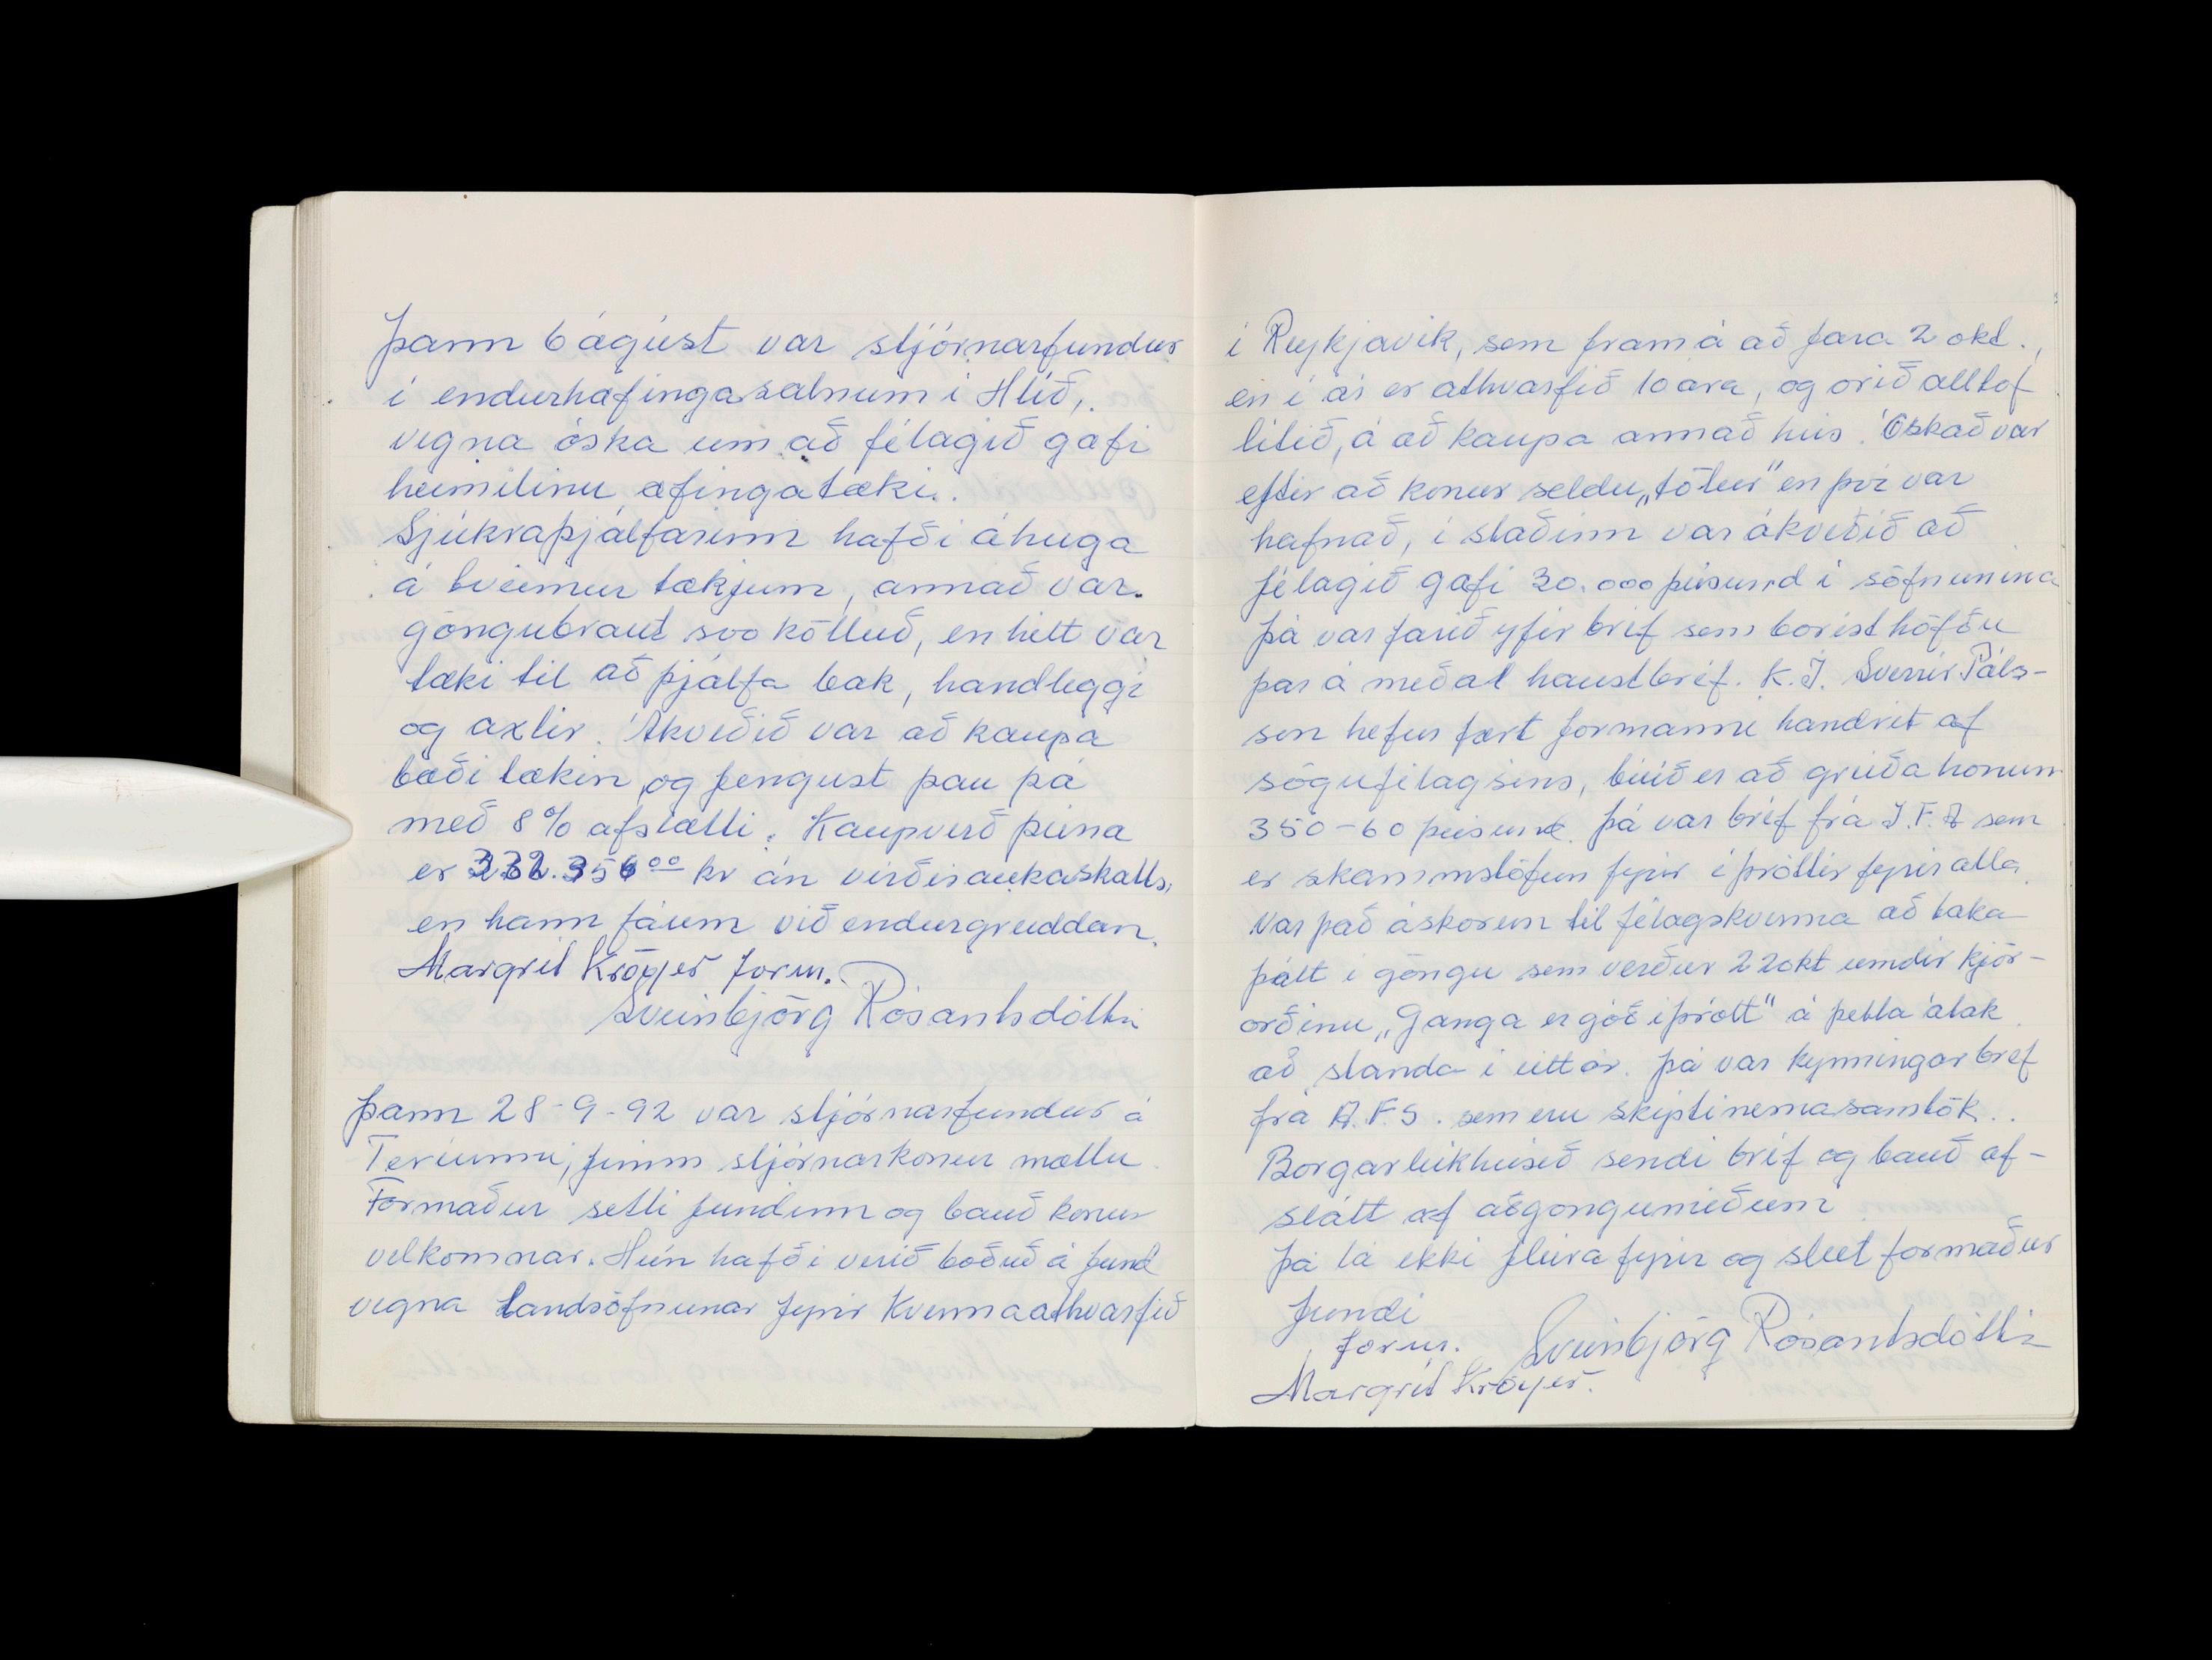 Þann 6 ágúst var stjórnarfundur
í endurhæfingasalnum í Hlíð,
vegna óska um að félagið gæfi
heimilinu æfingatæki.
Sjúkraþjálfarinn hafði áhuga
á tveimur tækjum, annað var
göngubraut svo kölluð, en hitt var
tæki til að þjálfa bak, handleggi
og axlir. Ákveðið var að kaupa
bæði tækin, og fengust þau þá
með 8% afslætti. Kaupverð þeirra
er 332.356 00 kr án virðisaukaskatts,
en hann fáum við endurgreiddan.
Margrét Kröyer form.
Sveinbjörg Rósantsdóttir
Þann 28-9-92 var stjórnarfundur á
Teríunni, fimm stjórnarkonur mættu
Formaður setti fundinn og bauð konur
velkomnar. Hún hafði verið boðuð á fund
vegna Landsöfnunar fyrir Kvennaathvarfið
í Reykjavík, sem fram á að fara 2 okt.,
en í ár er athvarfið 10 ára, og orið alltof
lítið, á að kaupa annað hús. Óskað var
eftir að konur seldu „tölur" en því var
hafnað, í staðinn var ákveðið að
félagið gæfi 30.000 þúsund í söfnunina
þá var farið yfir bréf sem borist höfðu
þar á meðal haustbréf. K.Í. Sverrir Páls-
son hefur fært formanni handrit af
sögufélagsins, búið er að greiða honum
350-60 þúsund. Þá var bréf frá Í.F.A sem
er skammstöfun fyrir íþróttir fyrir alla.
Var það áskorun til félagskvenna að taka
þátt í göngu sem verður 22 okt undir kjör-
orðinu „Ganga er góð íþrótt" á þetta átak
að standa í eitt ár. Þá var kynningarbréf
frá A.F.S. sem eru skiptinemasamtök..
Borgarleikhúsið sendi bréf og bauð af-
slátt af aðgöngumiðum
Þá lá ekki fleira fyrir og sleit formaður
fundi
form. Sveinbjörg Rósantsdóttir
Margrét Kröyer.